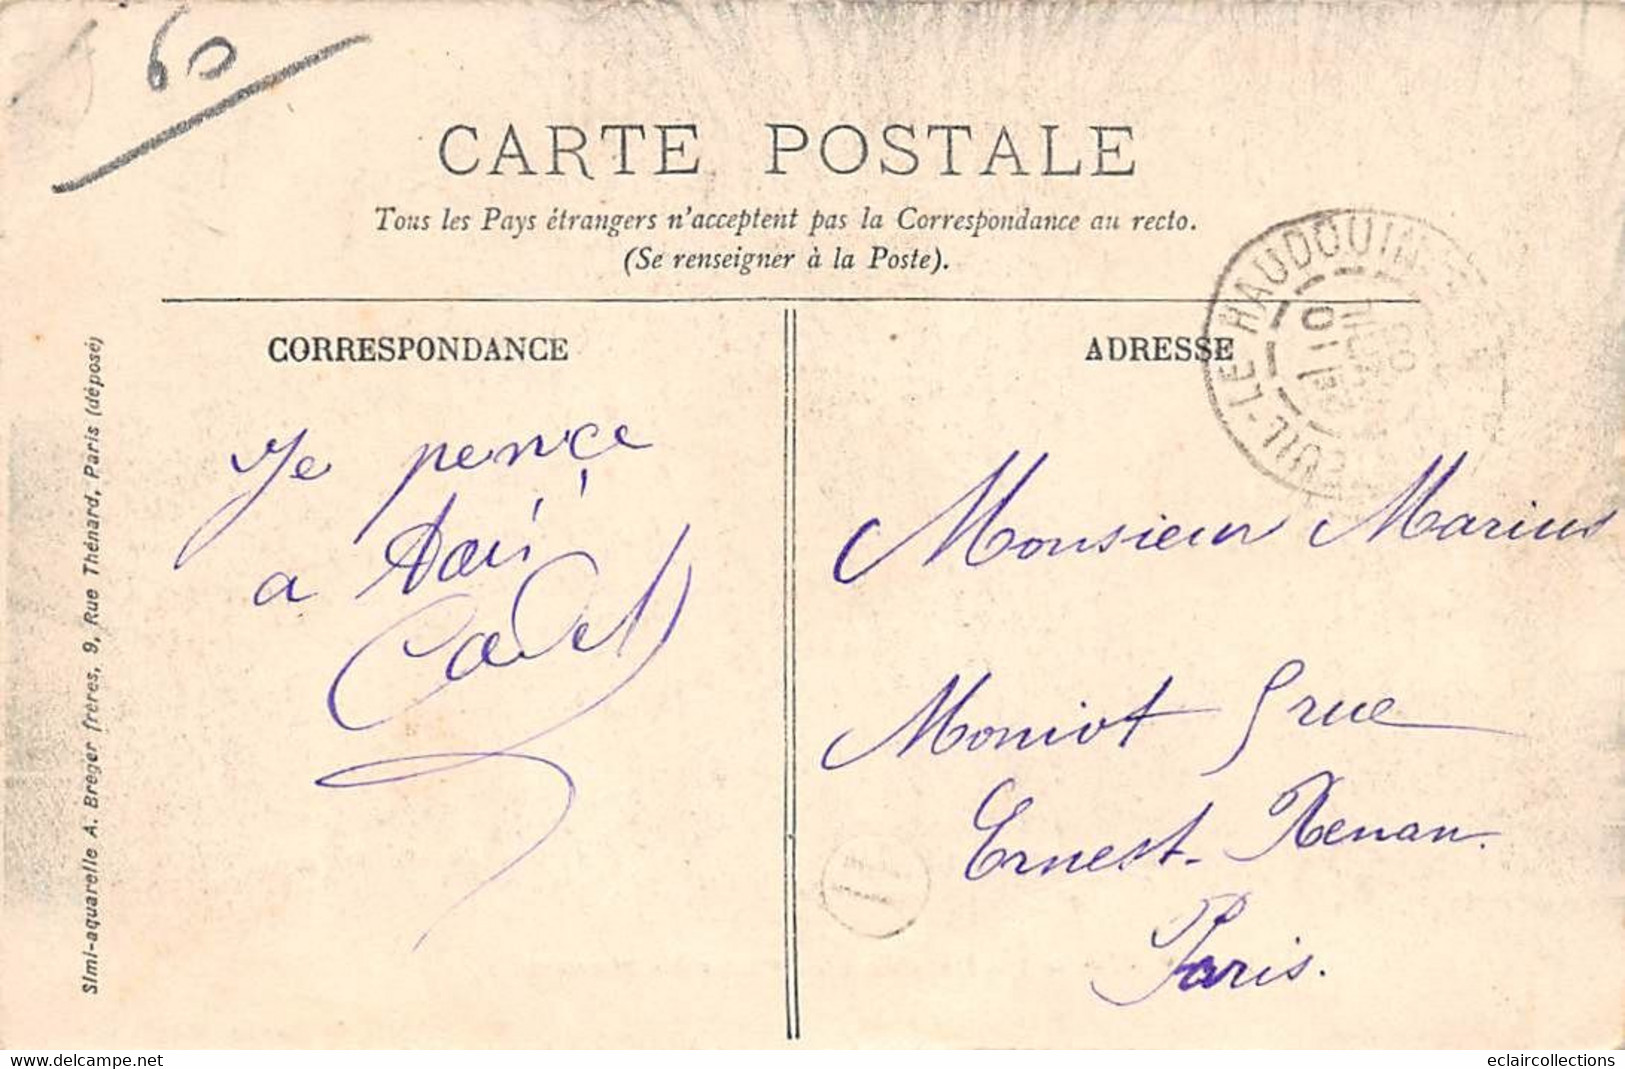 60
CARTE POSTALE
Tous les Pays étrangers n'acceptent pas la Correspondance au recto.
(Se renseigner à la Poste).
CORRESPONDANCE
ADRESSE
LE HAUDOUIN
Je pence
a toi
Monsieur Marius
Moniot rue
Ernest-Renan.
Paris.
Simi-aquarelle A. Breger frères, 9, Rue Thénard, Paris (déposé)
delcampe.net
eclaircollections